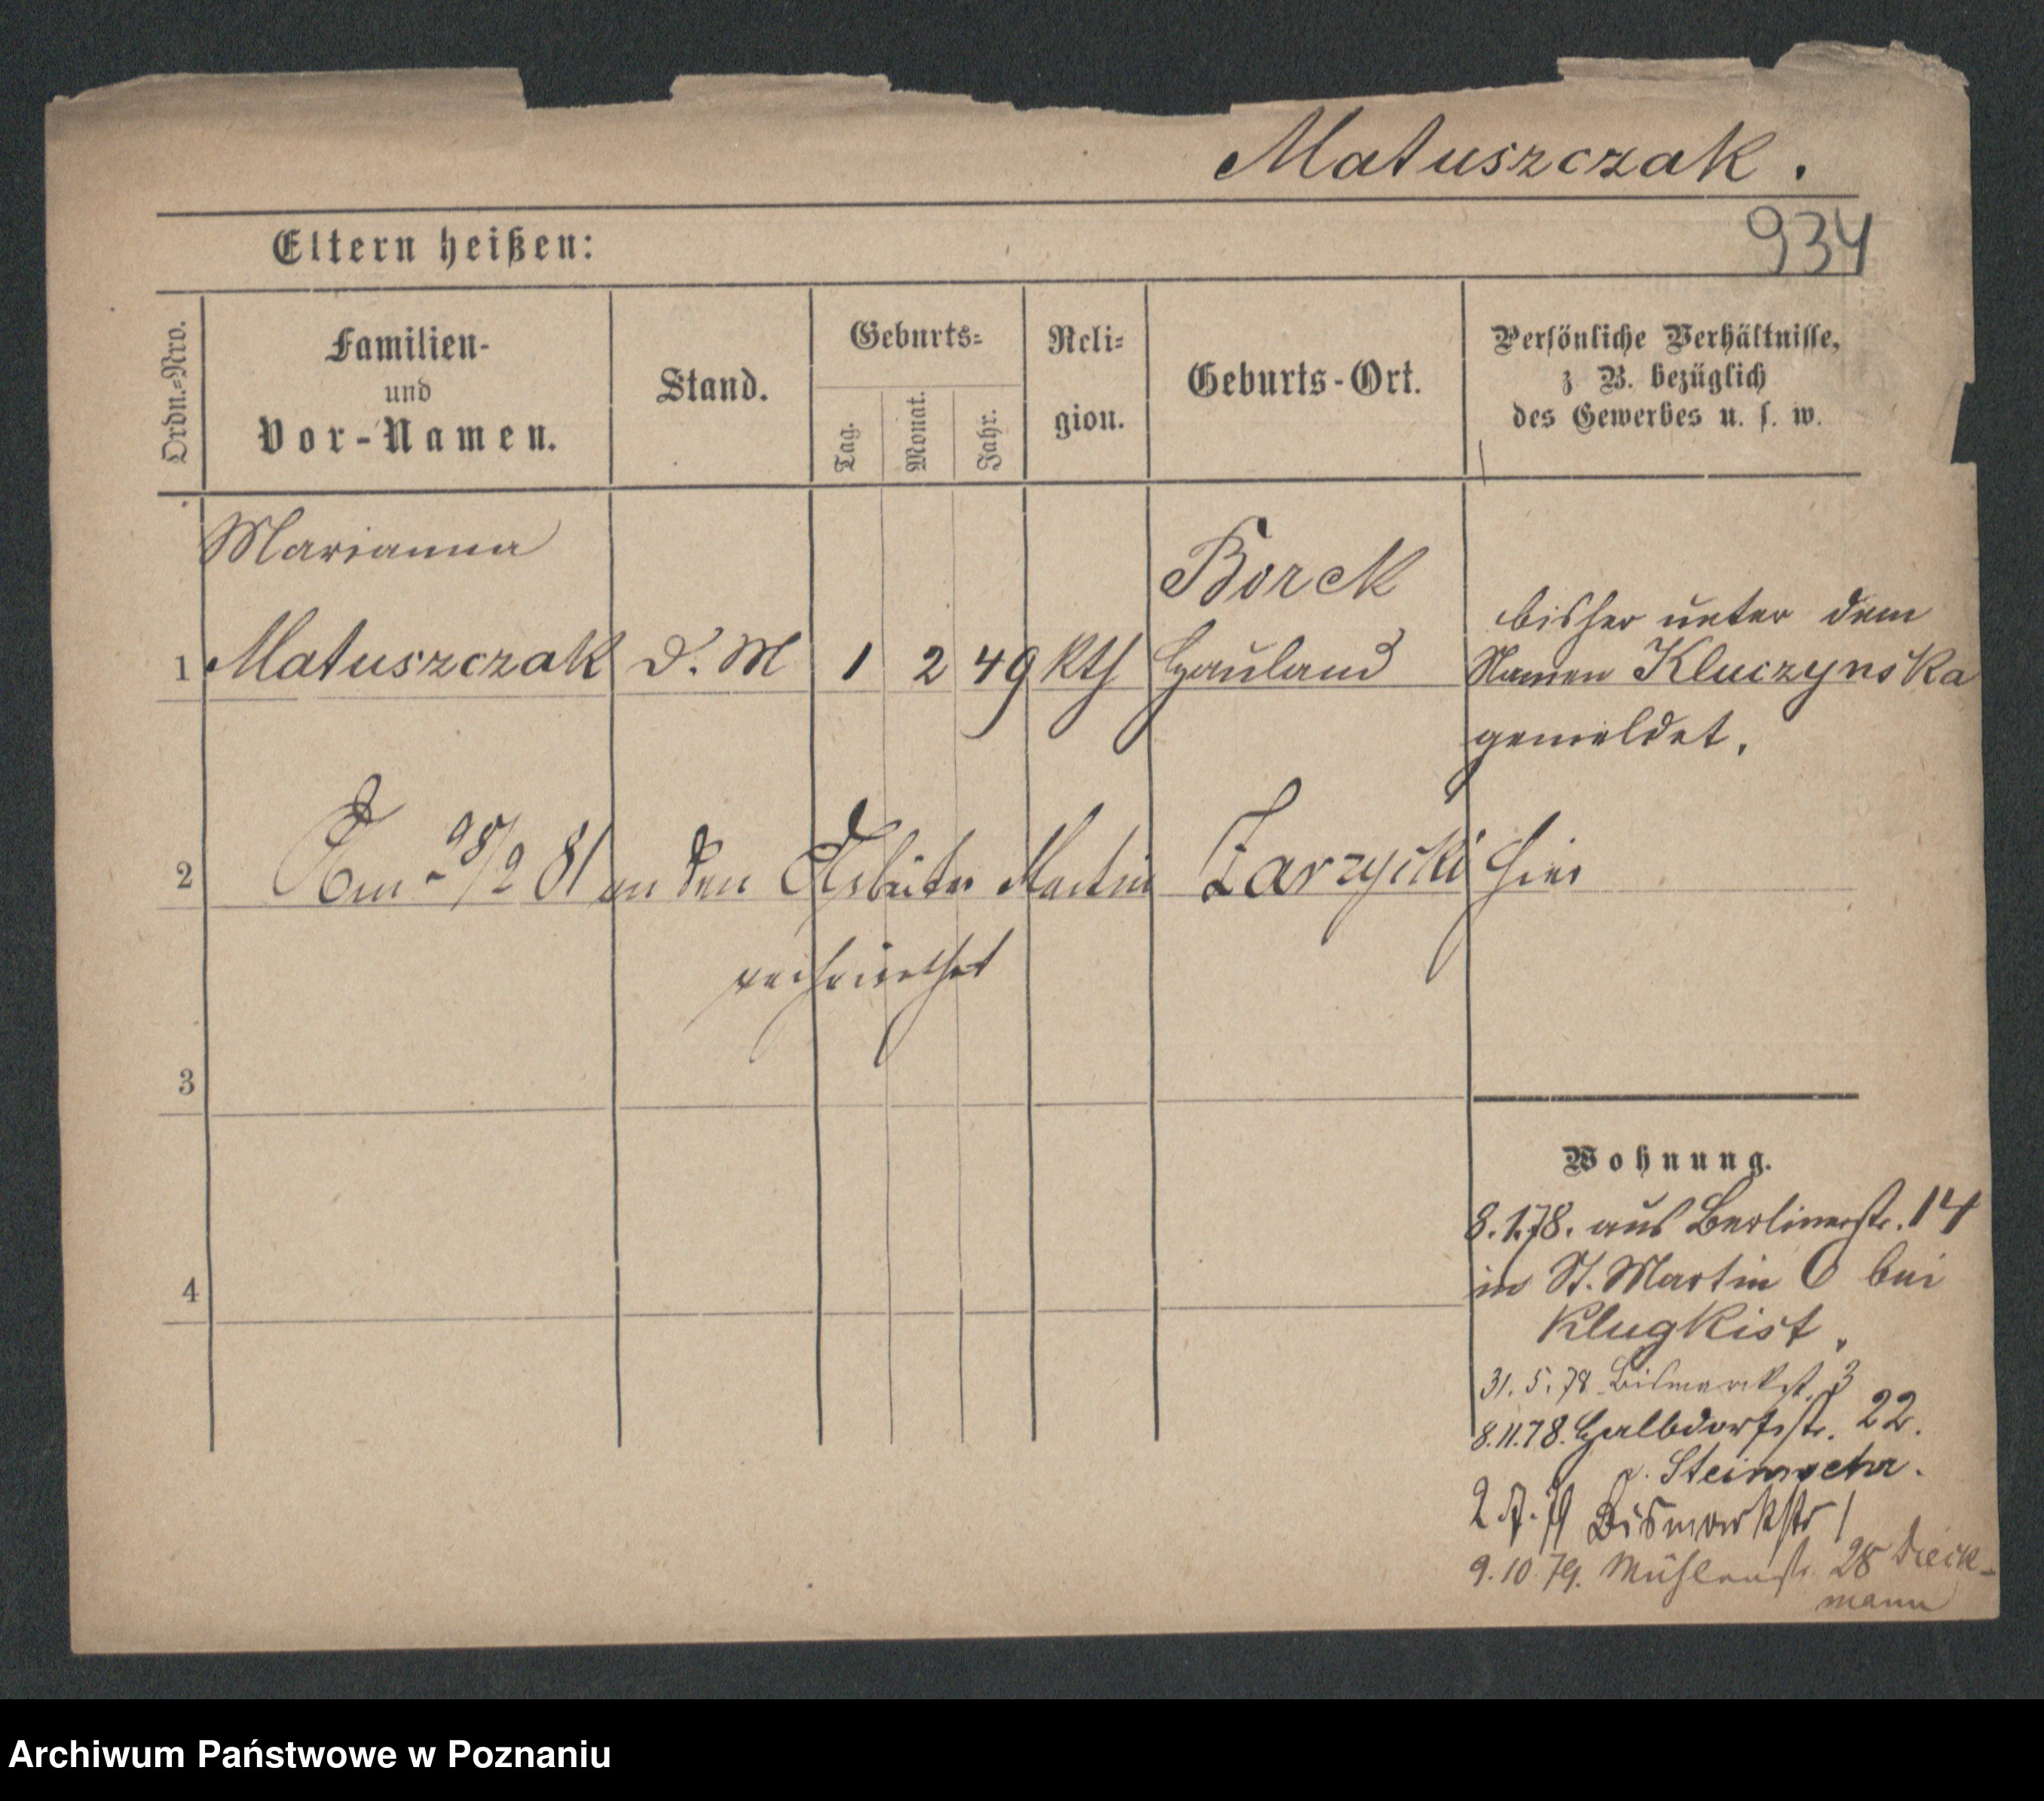 Matuszczak.
934
Eltern heißen:
Ordn.=Nro.
Familien-
und
Vor-Namen.
Stand.
Geburts=
Tag.
Monat.
Jahr.
Reli=
gion.
Geburts-Ort.
Persönliche Verhältnisse,
z B. bezüglich
des Gewerbes u. s. w.
Marianna
Borck
1 Matuszczak D. M 1 2 49 kth Hauland
bisher unter dem
Namen Kluczynska
gemeldet.
2 Am /2 81 an den Arbeiter Martin Zarzycki hier
verheirathet
3
4
Wohnung.
8.1.78. aus Berlinerstr. 14
in St. Martin 6 bei
Klugkist.
31. 5. 78 Bismarckst. 3
8.11.78. Halbdorfstr. 22.
v. Steinwehr.
2 79 Bismarkstr 1
9.10.79. Mühlenstr. 28 Dieck-
mann
Archiwum Państwowe w Poznaniu